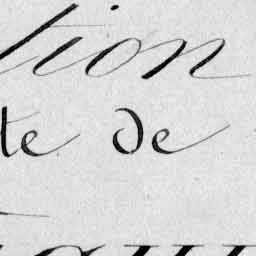 tion
te de